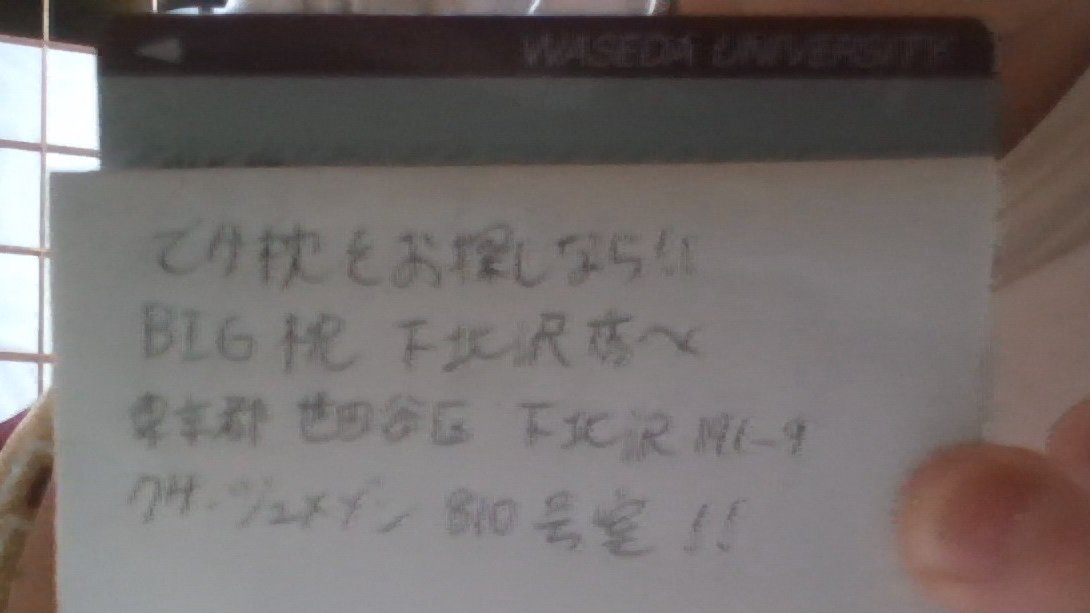 WASEDA UNIVERSITY
でか枕をお探しなら!!
BIG 枕 下北沢店へ
東京都 世田谷区 下北沢
810 号室 !!